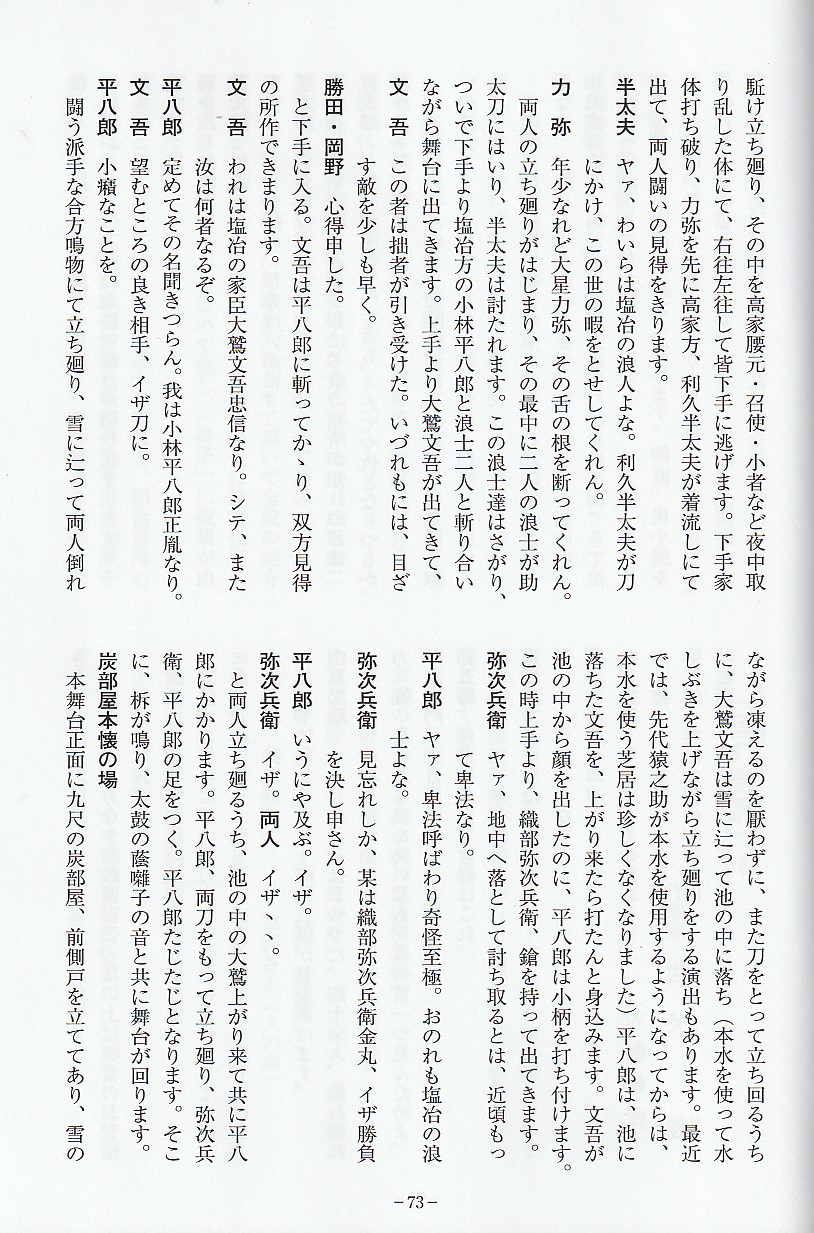 駈け立ち廻り、その中を高家腰元・召使・小者など夜中取
り乱した体にて、右往左往して皆下手に逃げます。下手家
体打ち破り、力弥を先に高家方、利久半太夫が着流しにて
出て、両人闘いの見得をきります。
半太夫 ヤァ、わいらは塩冶の浪人よな。利久半太夫が刀
にかけ、この世の暇をとせしてくれん。
力 弥 年少なれど大星力弥、その舌の根を断ってくれん。
両人の立ち廻りがはじまり、その最中に二人の浪士が助
太刀にはいり、半太夫は討たれます。この浪士達はさがり、
ついで下手より塩冶方の小林平八郎と浪士二人と斬り合い
ながら舞台に出てきます。上手より大鷲文吾が出てきて、
文 吾 この者は拙者が引き受けた。いづれもには、目ざ
す敵を少しも早く。
勝田・岡野 心得申した。
と下手に入る。文吾は平八郎に斬ってかゝり、双方見得
の所作できまります。
文 吾 われは塩冶の家臣大鷲文吾忠信なり。シテ、また
汝は何者なるぞ。
平八郎 定めてその名聞きつらん。我は小林平八郎正胤なり。
文 吾 望むところの良き相手、イザ刀に。
平八郎 小癪なことを。
闘う派手な合方鳴物にて立ち廻り、雪に辷って両人倒れ
ながら凍えるのを厭わずに、また刀をとって立ち回るうち
に、大鷲文吾は雪に辷って池の中に落ち（本水を使って水
しぶきを上げながら立ち廻りをする演出もあります。最近
では、先代猿之助が本水を使用するようになってからは、
本水を使う芝居は珍しくなくなりました）平八郎は、池に
落ちた文吾を、上がり来たら打たんと身込みます。文吾が
池の中から顔を出したのに、平八郎は小柄を打ち付けます。
この時上手より、織部弥次兵衛、鎗を持って出てきます。
弥次兵衛 ヤァ、地中へ落として討ち取るとは、近頃もっ
て卑法なり。
平八郎 ヤァ、卑法呼ばわり奇怪至極。おのれも塩冶の浪
士よな。
弥次兵衛 見忘れしか、某は織部弥次兵衛金丸、イザ勝負
を決し申さん。
平八郎 いうにや及ぶ。イザ。
弥次兵衛 イザ。両人 イザヽヽ。
と両人立ち廻るうち、池の中の大鷲上がり来て共に平八
郎にかかります。平八郎、両刀をもって立ち廻り、弥次兵
衛、平八郎の足をつく。平八郎たじたじとなります。そこ
に、柝が鳴り、太鼓の蔭囃子の音と共に舞台が回ります。
炭部屋本懐の場
本舞台正面に九尺の炭部屋、前側戸を立ててあり、雪の
−73−